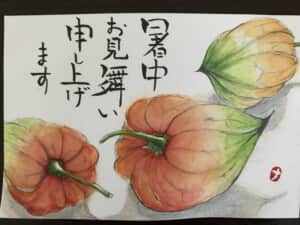 暑中
お見舞い
申し上げ
ます
ナ